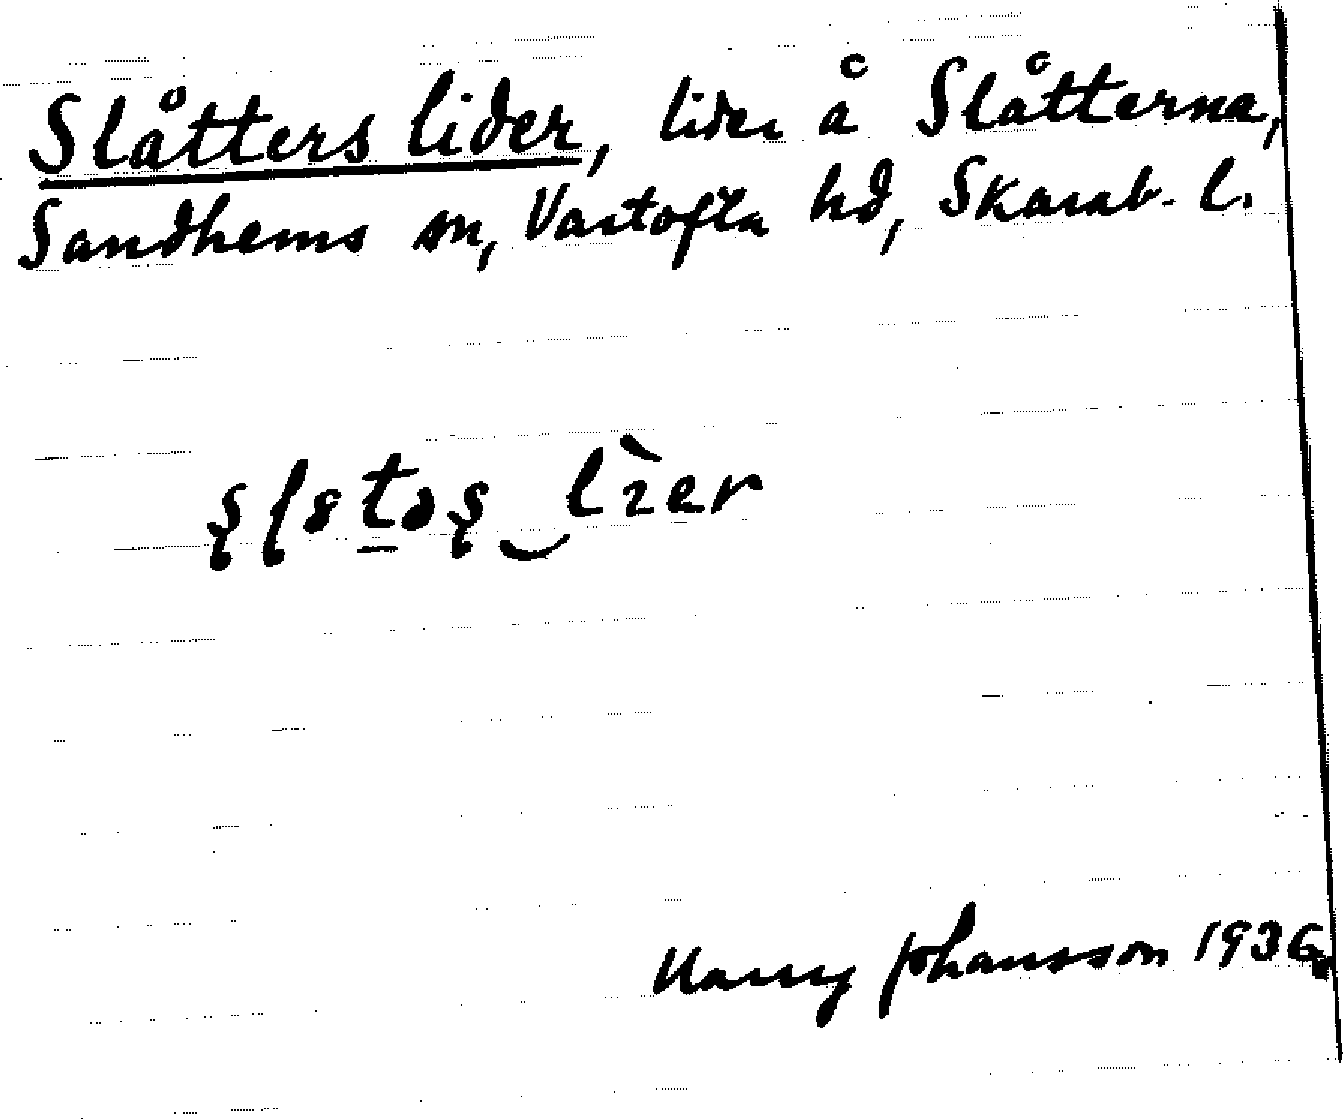 Slåtters lider, lider å Slåtterna,
Sandhems sn, Vartofta hd, Skarab. l.
lìer
Harry Johansson 1936